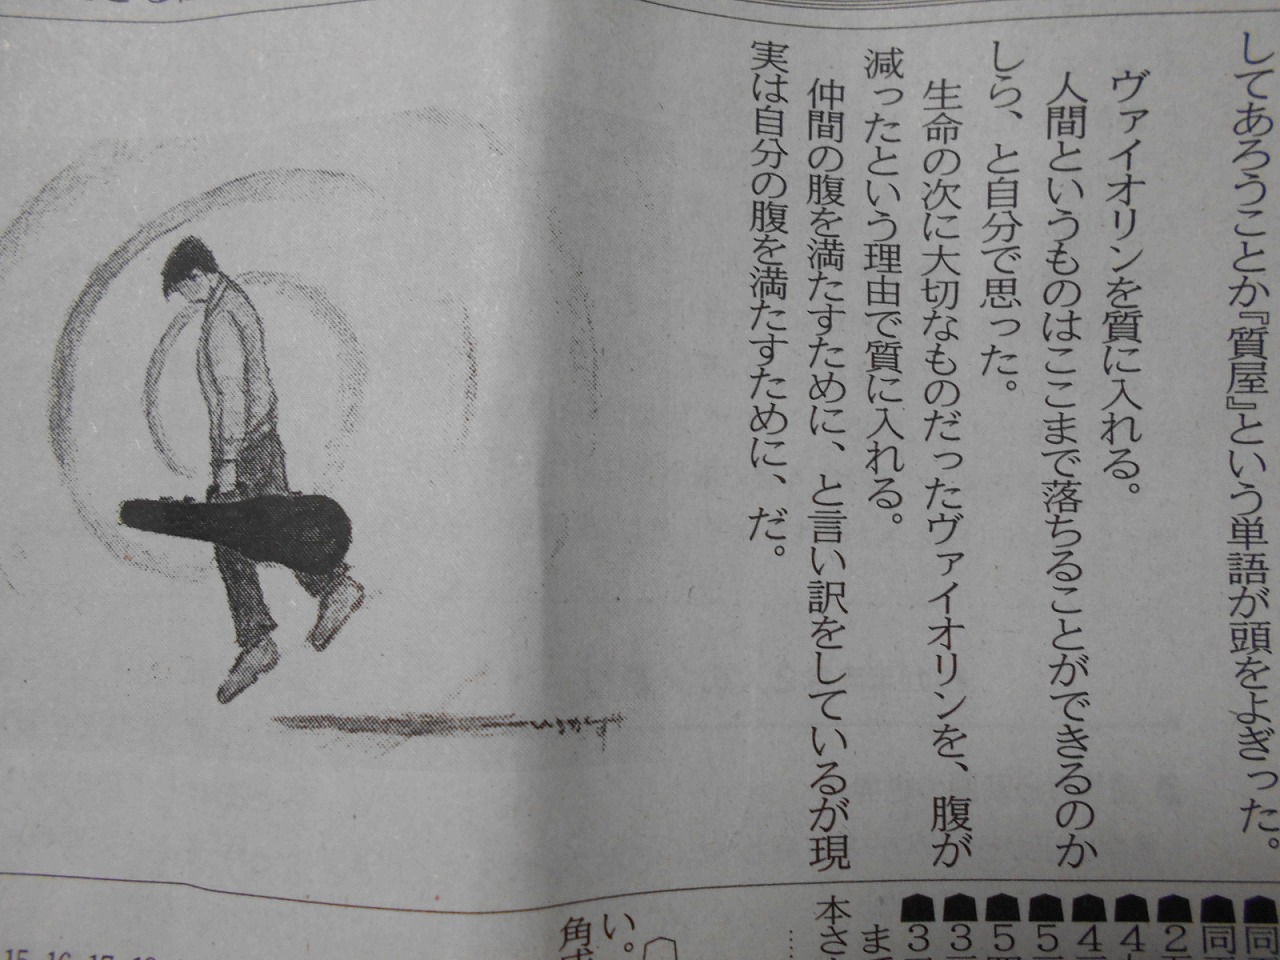 してあろうことか『質屋』という単語が頭をよぎった。
ヴァイオリンを質に入れる。
人間というものはここまで落ちることができるのか
しら、と自分で思った。
生命の次に大切なものだったヴァイオリンを、腹が
減ったという理由で質に入れる。
仲間の腹を満たすために、と言い訳をしているが現
実は自分の腹を満たすために、だ。
同
同
2
4
4
5
5
3
3
ま
本さ
い。
角
15 16 17